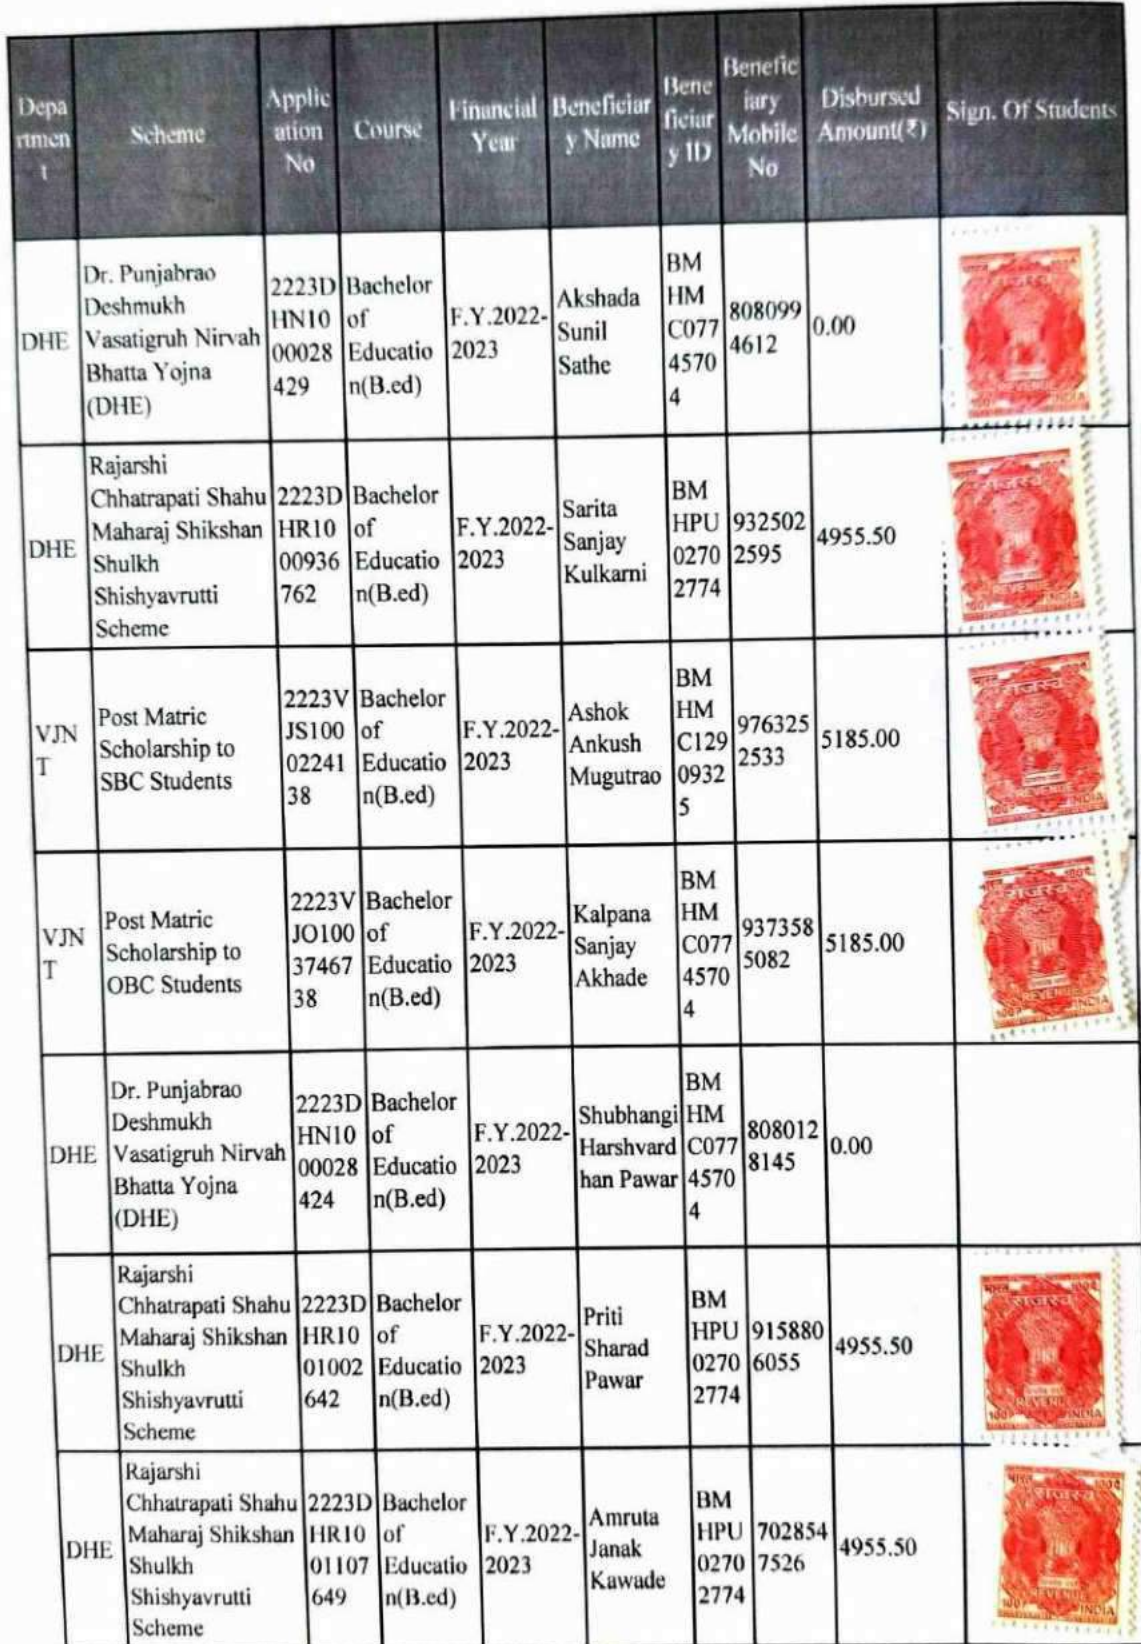 Depa
rtmen
t
Scheme
Applic
ation
No
Course
Financial
Year
Beneficiar
y Name
Bene
ficiar
y ID
Benefic
iary
Mobile
No
Disbursed
Amount(₹)
Sign. Of Students
DHE
Dr. Punjabrao
Deshmukh
Vasatigruh Nirvah
Bhatta Yojna
(DHE)
2223D
HN10
00028
429
Bachelor
of
Educatio
n(B.ed)
F.Y.2022-
2023
Akshada
Sunil
Sathe
BM
HM
C077
4570
4
808099
4612
0.00
REVENUE
INDIA
DHE
Rajarshi
Chhatrapati Shahu
Maharaj Shikshan
Shulkh
Shishyavrutti
Scheme
2223D
HR10
00936
762
Bachelor
of
Educatio
n(B.ed)
F.Y.2022-
2023
Sarita
Sanjay
Kulkarni
BM
HPU
0270
2774
932502
2595
4955.50
राजस्व
REVENUE
INDIA
VJN
T
Post Matric
Scholarship to
SBC Students
2223V
JS100
02241
38
Bachelor
of
Educatio
n(B.ed)
F.Y.2022-
2023
Ashok
Ankush
Mugutrao
BM
HM
C129
0932
5
976325
2533
5185.00
राजस्व
REVENUE
INDIA
VJN
T
Post Matric
Scholarship to
OBC Students
2223V
JO100
37467
38
Bachelor
of
Educatio
n(B.ed)
F.Y.2022-
2023
Kalpana
Sanjay
Akhade
BM
HM
C077
4570
4
937358
5082
5185.00
राजस्व
REVENUE
INDIA
DHE
Dr. Punjabrao
Deshmukh
Vasatigruh Nirvah
Bhatta Yojna
(DHE)
2223D
HN10
00028
424
Bachelor
of
Educatio
n(B.ed)
F.Y.2022-
2023
Shubhangi
Harshvard
han Pawar
BM
HM
C077
4570
4
808012
8145
0.00
DHE
Rajarshi
Chhatrapati Shahu
Maharaj Shikshan
Shulkh
Shishyavrutti
Scheme
2223D
HR10
01002
642
Bachelor
of
Educatio
n(B.ed)
F.Y.2022-
2023
Priti
Sharad
Pawar
BM
HPU
0270
2774
915880
6055
4955.50
राजस्व
REVENUE
INDIA
DHE
Rajarshi
Chhatrapati Shahu
Maharaj Shikshan
Shulkh
Shishyavrutti
Scheme
2223D
HR10
01107
649
Bachelor
of
Educatio
n(B.ed)
F.Y.2022-
2023
Amruta
Janak
Kawade
BM
HPU
0270
2774
702854
7526
4955.50
राजस्व
REVENUE
INDIA